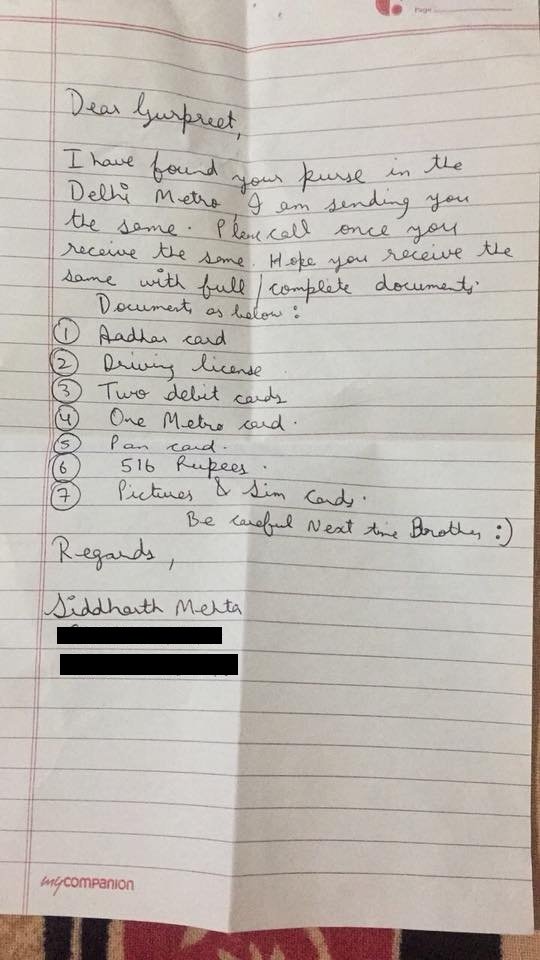 Page
Dear Gurpreet,
I have found your purse in the
Delhi Metro, I am sending you
the same. Please call once you
receive the same. Hope you receive the
same with full/complete documents.
Documents as below:
1 Aadhar card
2 Driving license
3 Two debit cards
4 One Metro card.
5 Pan card.
6 516 Rupees.
7 Pictures & Sim cards.
Be careful Next time Brother :)
Regards,
Siddharth Mehta
mycompanion